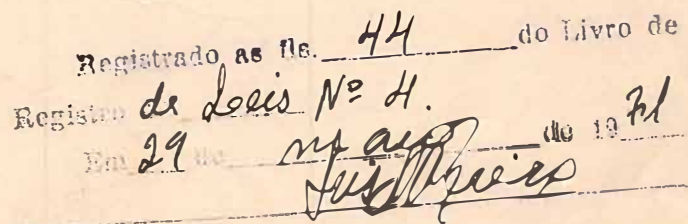 Registrado as fls. 44 do Livro de
Registro de Leis Nº 4.
Em 29 de maio de 1971